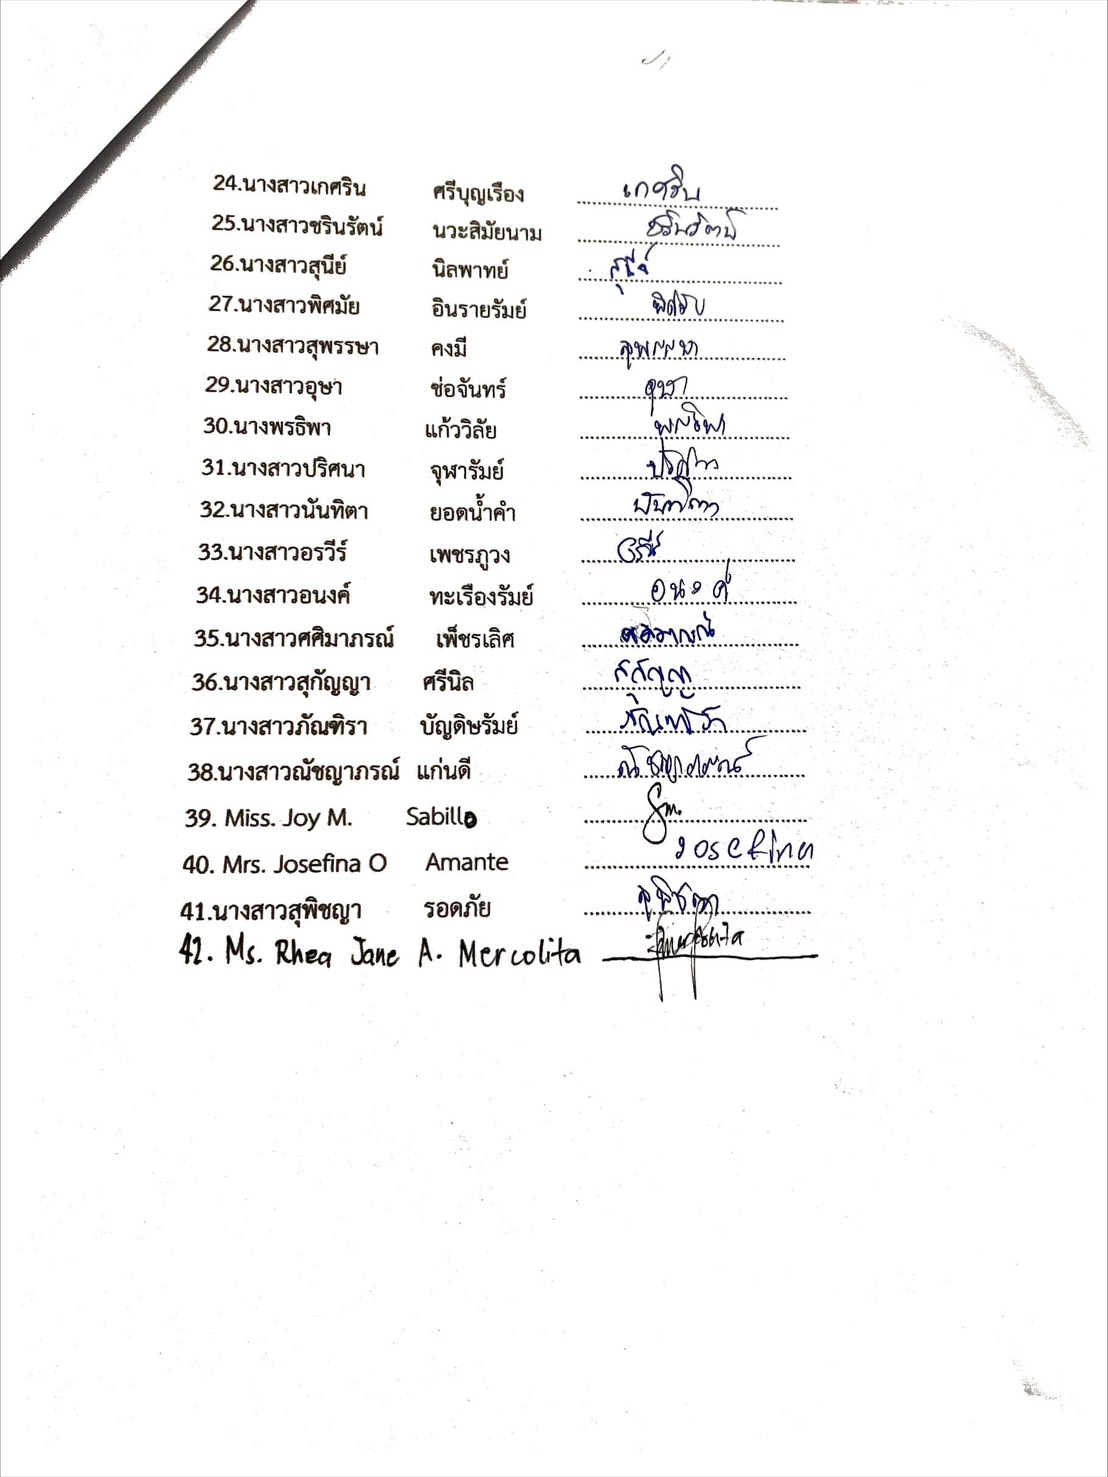 24.นางสาวเกศริน ศรีบุญเรือง เกศริน
25.นางสาวชรินรัตน์ นวะสิมัยนาม ชรินรัตน์
26.นางสาวสุนีย์ นิลพาทย์ สุนีย์
27.นางสาวพิศมัย อินรายรัมย์
28.นางสาวสุพรรษา คงมี สุพรรษา
29.นางสาวอุษา ช่อจันทร์ อุษา
30.นางพรธิพา แก้ววิลัย พรธิพา
31.นางสาวปริศนา จุฬารัมย์
32.นางสาวนันทิตา ยอดน้ำคำ นันทิตา
33.นางสาวอรวีร์ เพชรภูวง
34.นางสาวอนงค์ ทะเรืองรัมย์ อนงค์
35.นางสาวศศิมาภรณ์ เพ็ชรเลิศ
36.นางสาวสุกัญญา ศรีนิล สุกัญญา
37.นางสาวภัณฑิรา บัญดิษรัมย์ ภัณฑิรา
38.นางสาวณัชญาภรณ์ แก่นดี ณัชญาภรณ์
39. Miss. Joy M. Sabillo
40. Mrs. Josefina O Amante Josefina
41.นางสาวสุพิชญา รอดภัย สุพิชญา
42. Ms. Rhea Jane A. Mercolita